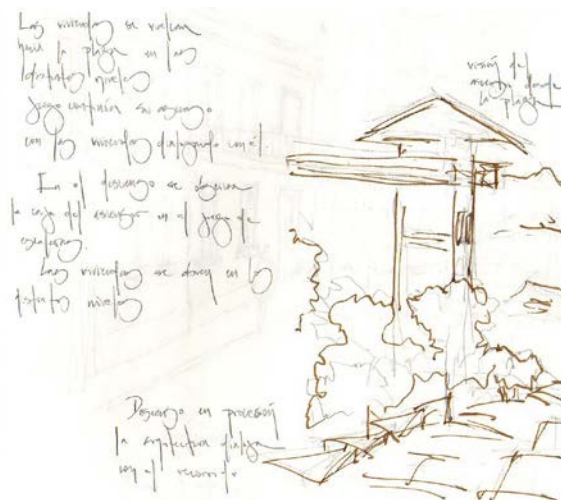 Las viviendas se vuelcan
hacia la plaza en los
distintos niveles
Juego continúa su ascenso
con las viviendas dialogando con él.
En el descenso se
la caja del ascensor en el juego de
escaleras.
Las viviendas se abren en los
distintos niveles
visión del
ascensor desde
la plaza
Descenso en procesión
la arquitectura dialoga
con el recorrido